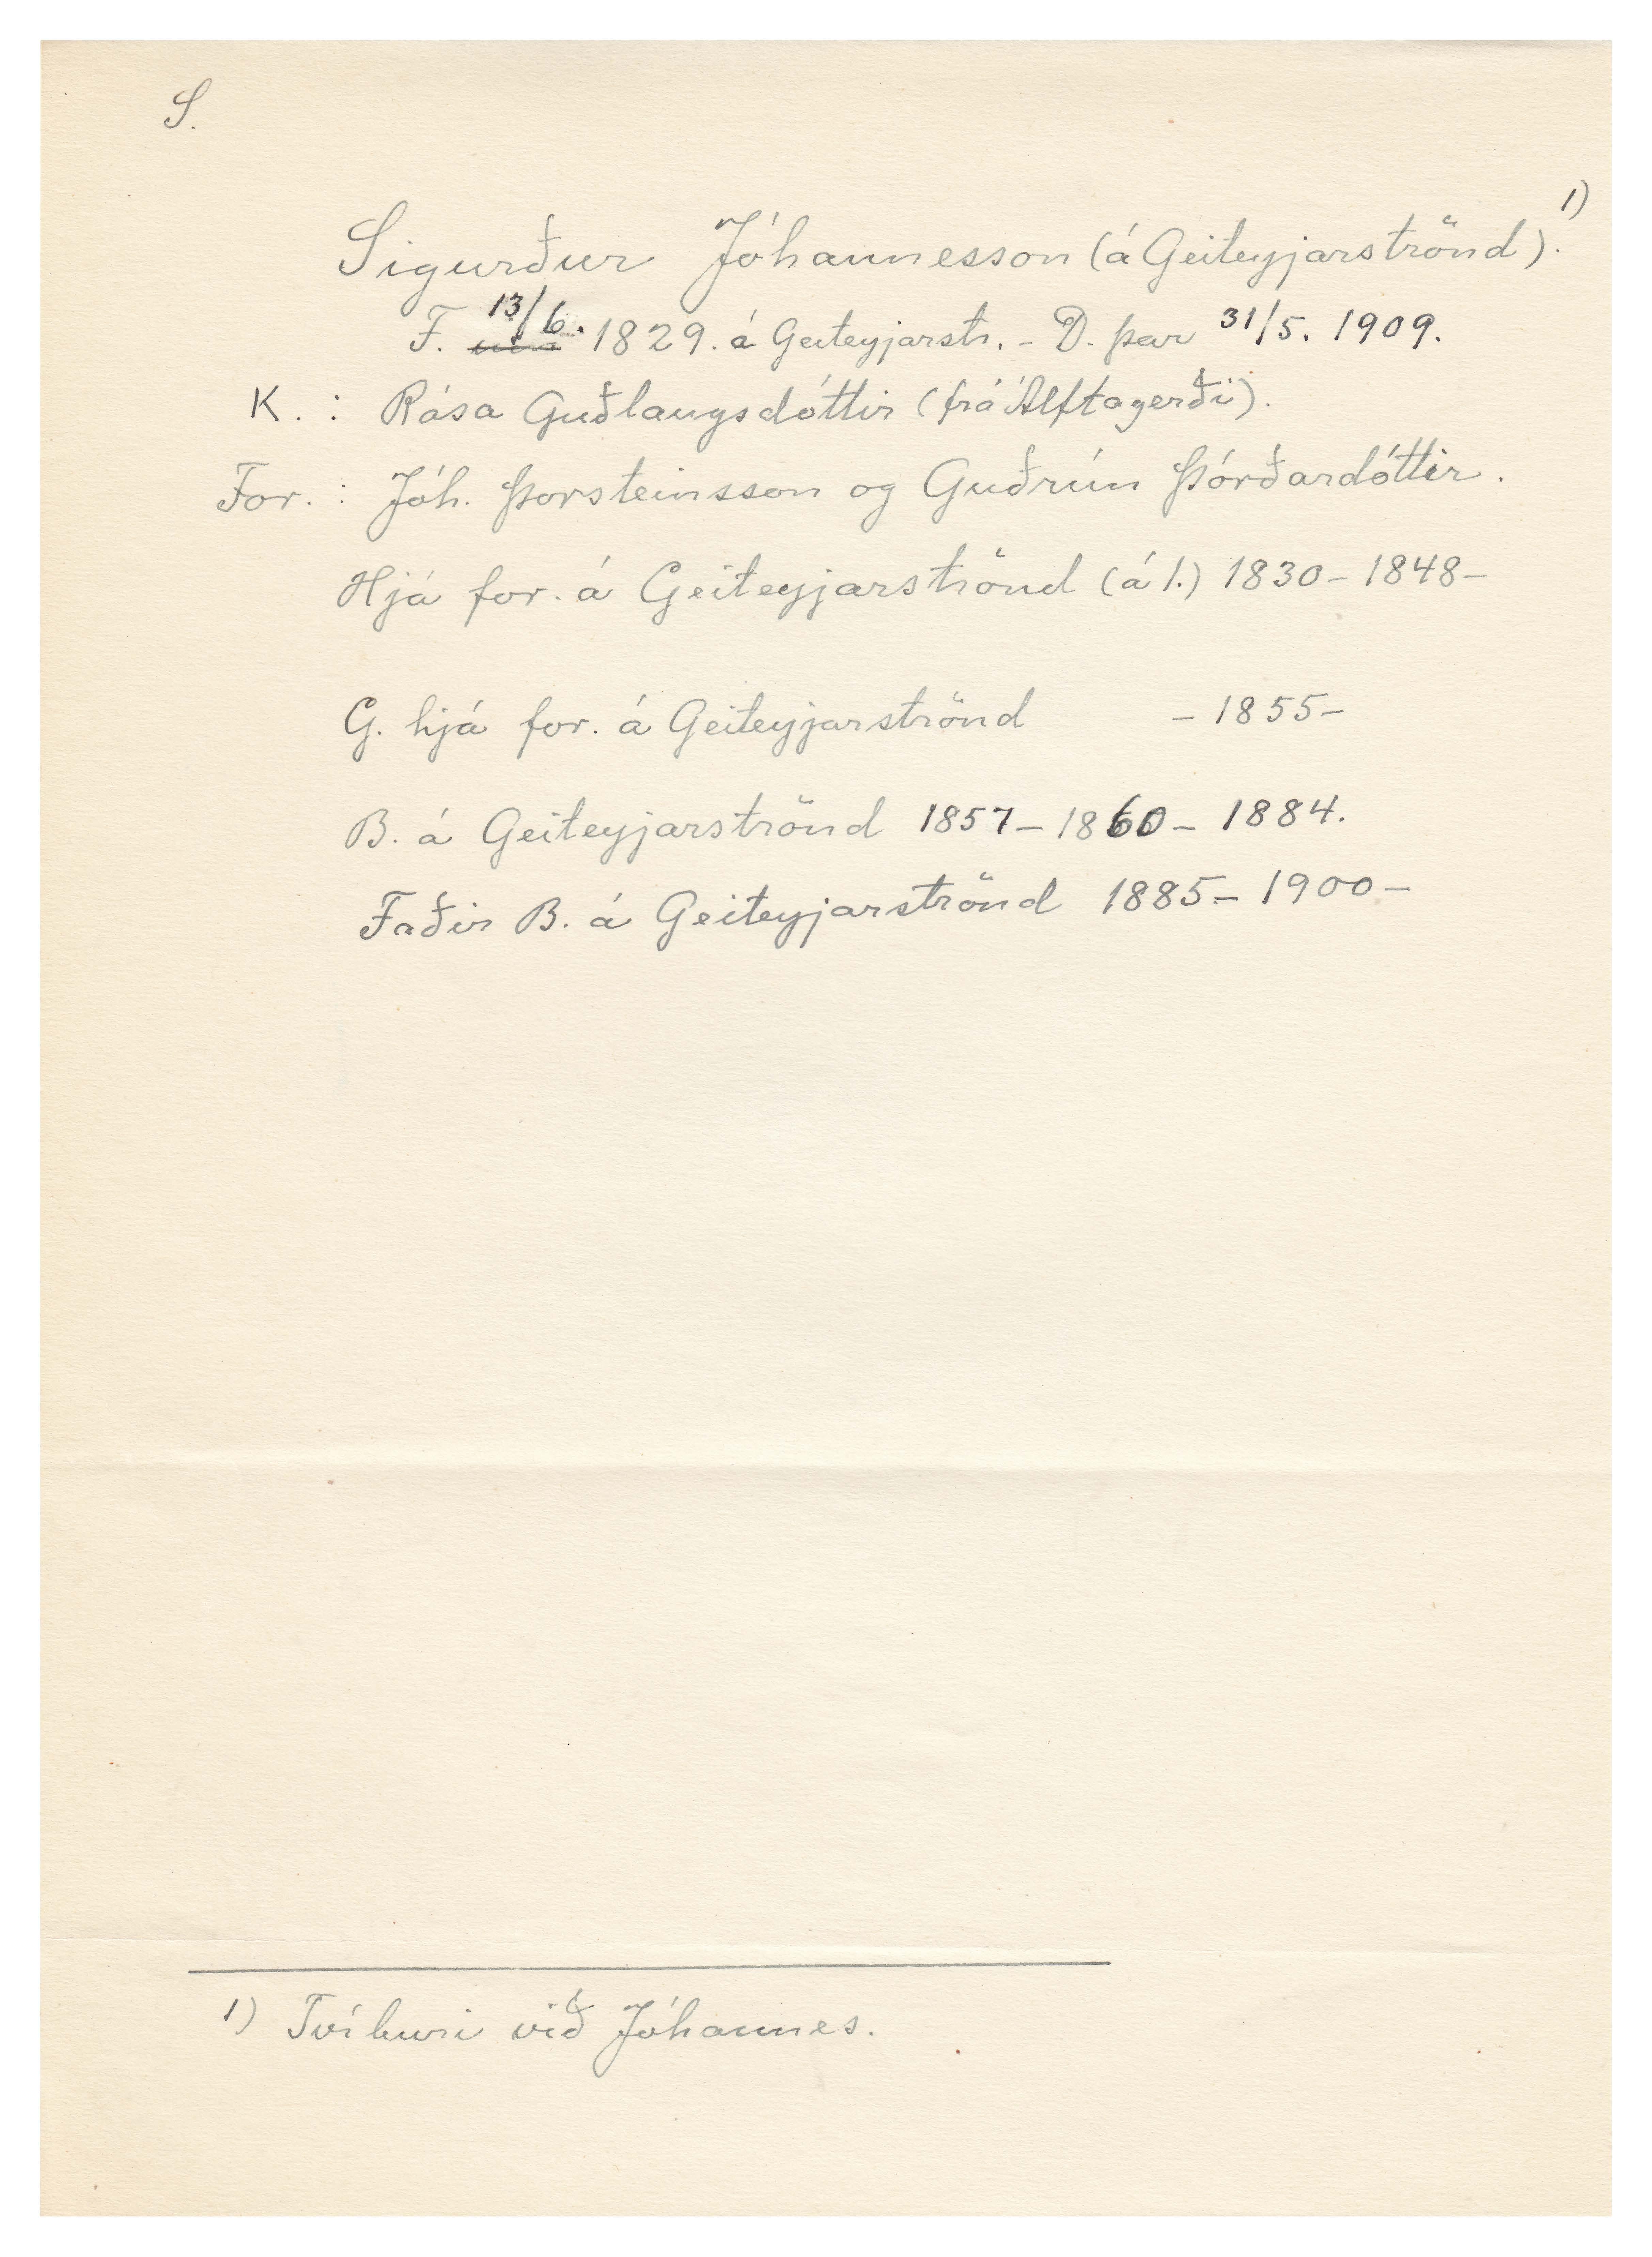 S.
Sigurður Jóhannesson (á Geiteyjarströnd).¹⁾
F. 13/6. 1829. á Geiteyjarstr. - D. þar 31/5. 1909.
K. : Rósa Guðlaugsdóttir (frá Álftagerði).
For. : Jóh. Þorsteinsson og Guðrún Þórðardóttir.
Hjá for. á Geiteyjarströnd (á 1.) 1830 - 1848 -
G. hjá for. á Geiteyjarströnd - 1855 -
B. á Geiteyjarströnd 1857 - 1860 - 1884.
Faðir B. á Geiteyjarströnd 1885 - 1900 -
1) Tvíburi við Jóhannes.